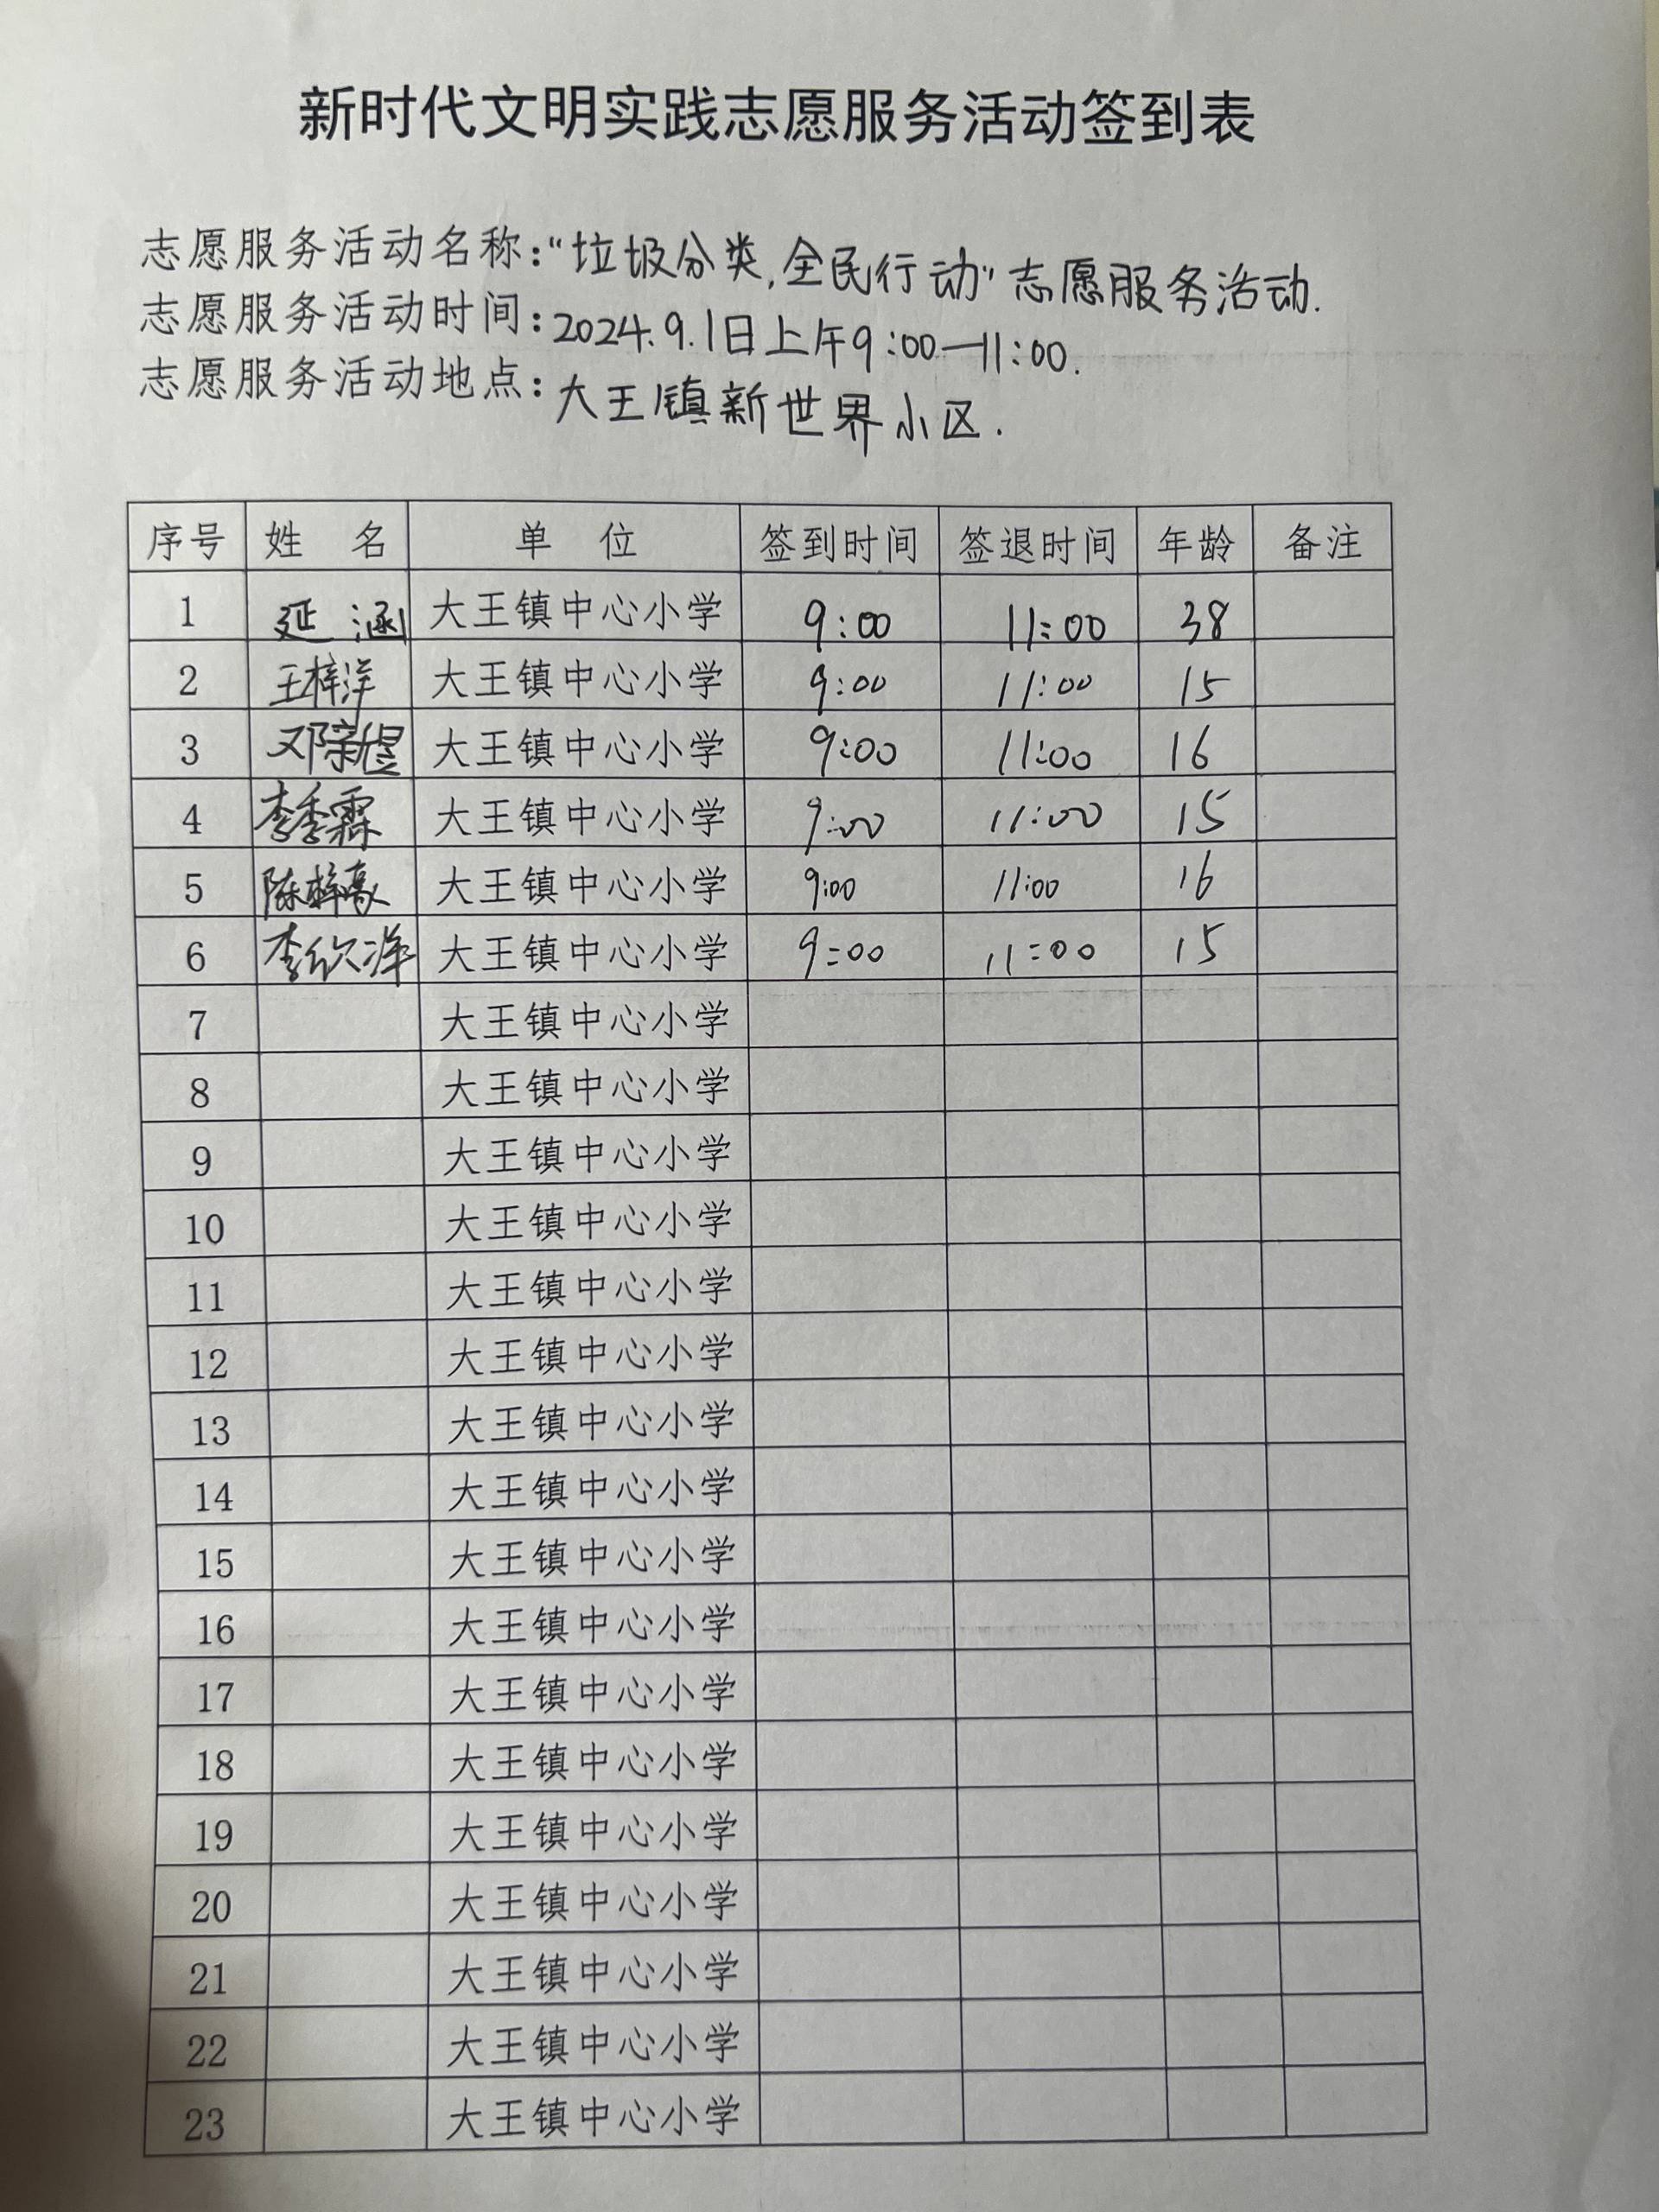 新时代文明实践志愿服务活动签到表
志愿服务活动名称:“垃圾分类,全民行动”志愿服务活动.
志愿服务活动时间:2024.9.1日上午9:00—11:00.
志愿服务活动地点:大王镇新世界小区.
序号 姓 名 单 位 签到时间 签退时间 年龄 备注
1 延 涵 大王镇中心小学 9:00 11:00 38
2 王梓洋 大王镇中心小学 9:00 11:00 15
3 邓新煜 大王镇中心小学 9:00 11:00 16
4 李季霖 大王镇中心小学 9:00 11:00 15
5 陈梓豪 大王镇中心小学 9:00 11:00 16
6 李欣洋 大王镇中心小学 9:00 11:00 15
7 大王镇中心小学
8 大王镇中心小学
9 大王镇中心小学
10 大王镇中心小学
11 大王镇中心小学
12 大王镇中心小学
13 大王镇中心小学
14 大王镇中心小学
15 大王镇中心小学
16 大王镇中心小学
17 大王镇中心小学
18 大王镇中心小学
19 大王镇中心小学
20 大王镇中心小学
21 大王镇中心小学
22 大王镇中心小学
23 大王镇中心小学